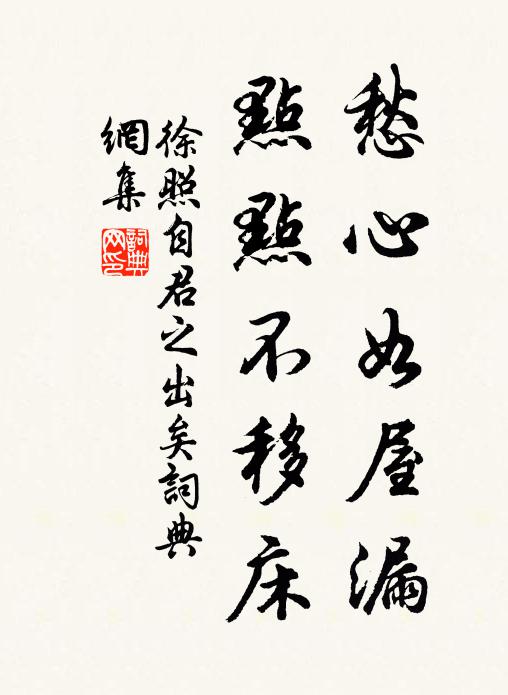 愁心如屋漏
點點不移床
徐照自君之出矣詞典
網集
詞典網印